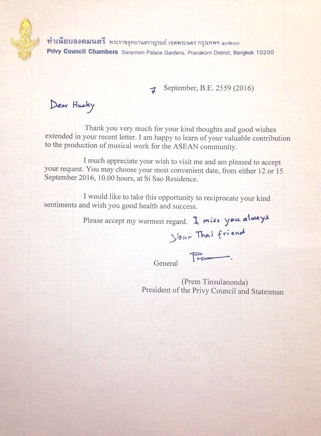 ทำเนียบองคมนตรี พระราชอุทยานสราญรมย์ เขตพระนคร กรุงเทพฯ ๑๐๒๐๐
Privy Council Chambers Saranrom Palace Gardens, Pranakorn District, Bangkok 10200
7 September, B.E. 2559 (2016)
Dear
Thank you very much for your kind thoughts and good wishes
extended in your recent letter. I am happy to learn of your valuable contribution
to the production of musical work for the ASEAN community.
I much appreciate your wish to visit me and am pleased to accept
your request. You may choose your most convenient date, from either 12 or 15
September 2016, 10.00 hours, at Si Sao Residence.
I would like to take this opportunity to reciprocate your kind
sentiments and wish you good health and success.
Please accept my warmest regard. I miss you always
your Thai friend
General
(Prem Tinsulanonda)
President of the Privy Council and Statesman